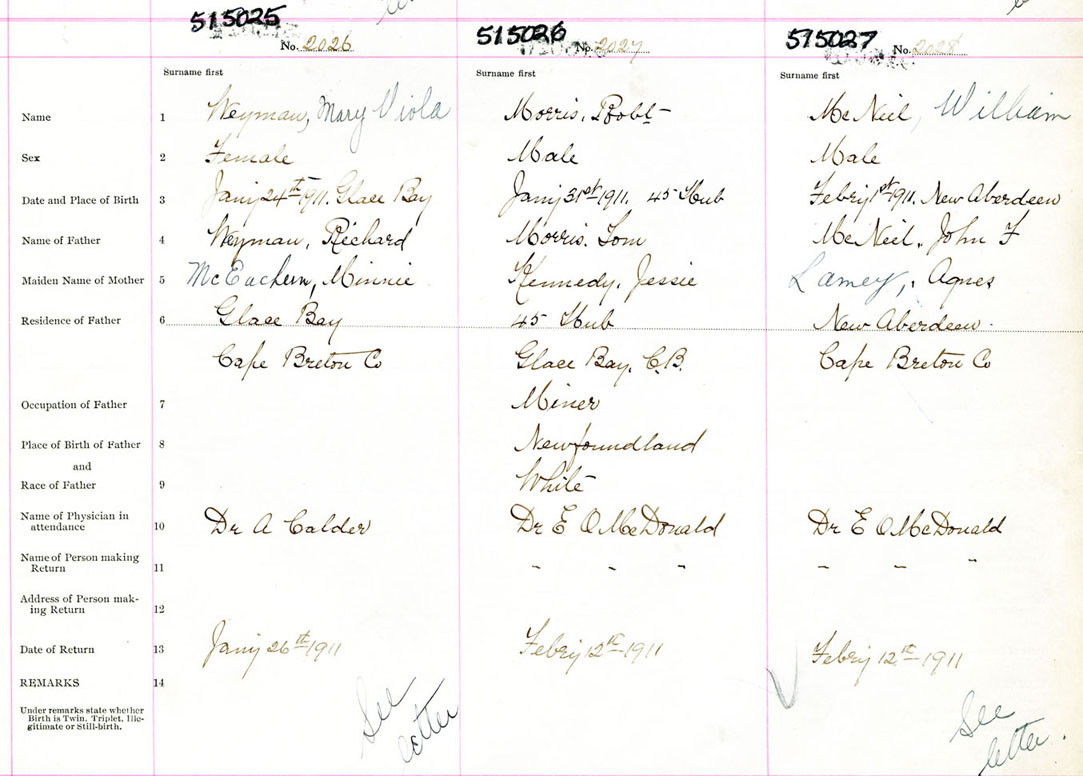 515025
No. 2026
515026
No. 2027
515027
No. 2028
Surname first
Surname first
Surname first
Name 1 Weyman, Mary Viola Morris, Robt McNeil, William
Sex 2 Female Male Male
Date and Place of Birth 3 Jany 24th 1911. Glace Bay Jany 31st 1911, 45 Hub Febry 1st 1911, New Aberdeen
Name of Father 4 Weyman, Richard Morris, Tom McNeil, John F
Maiden Name of Mother 5 McEachern, Minnie Kennedy, Jessie Lamey, Agnes
Residence of Father 6 Glace Bay 45 Hub New Aberdeen
Cape Breton Co Glace Bay, C.B. Cape Breton Co
Occupation of Father 7 Miner
Place of Birth of Father 8 Newfoundland
and
Race of Father 9 White
Name of Physician in
attendance 10 Dr A Calder Dr E O McDonald Dr E O McDonald
Name of Person making
Return 11 " " " " " "
Address of Person mak-
ing Return 12
Date of Return 13 Jany 26th 1911 Febry 12th 1911 Febry 12th 1911
REMARKS 14
Under remarks state whether
Birth is Twin, Triplet, Ille-
gitimate or Still-birth.
See
letter
See
letter.